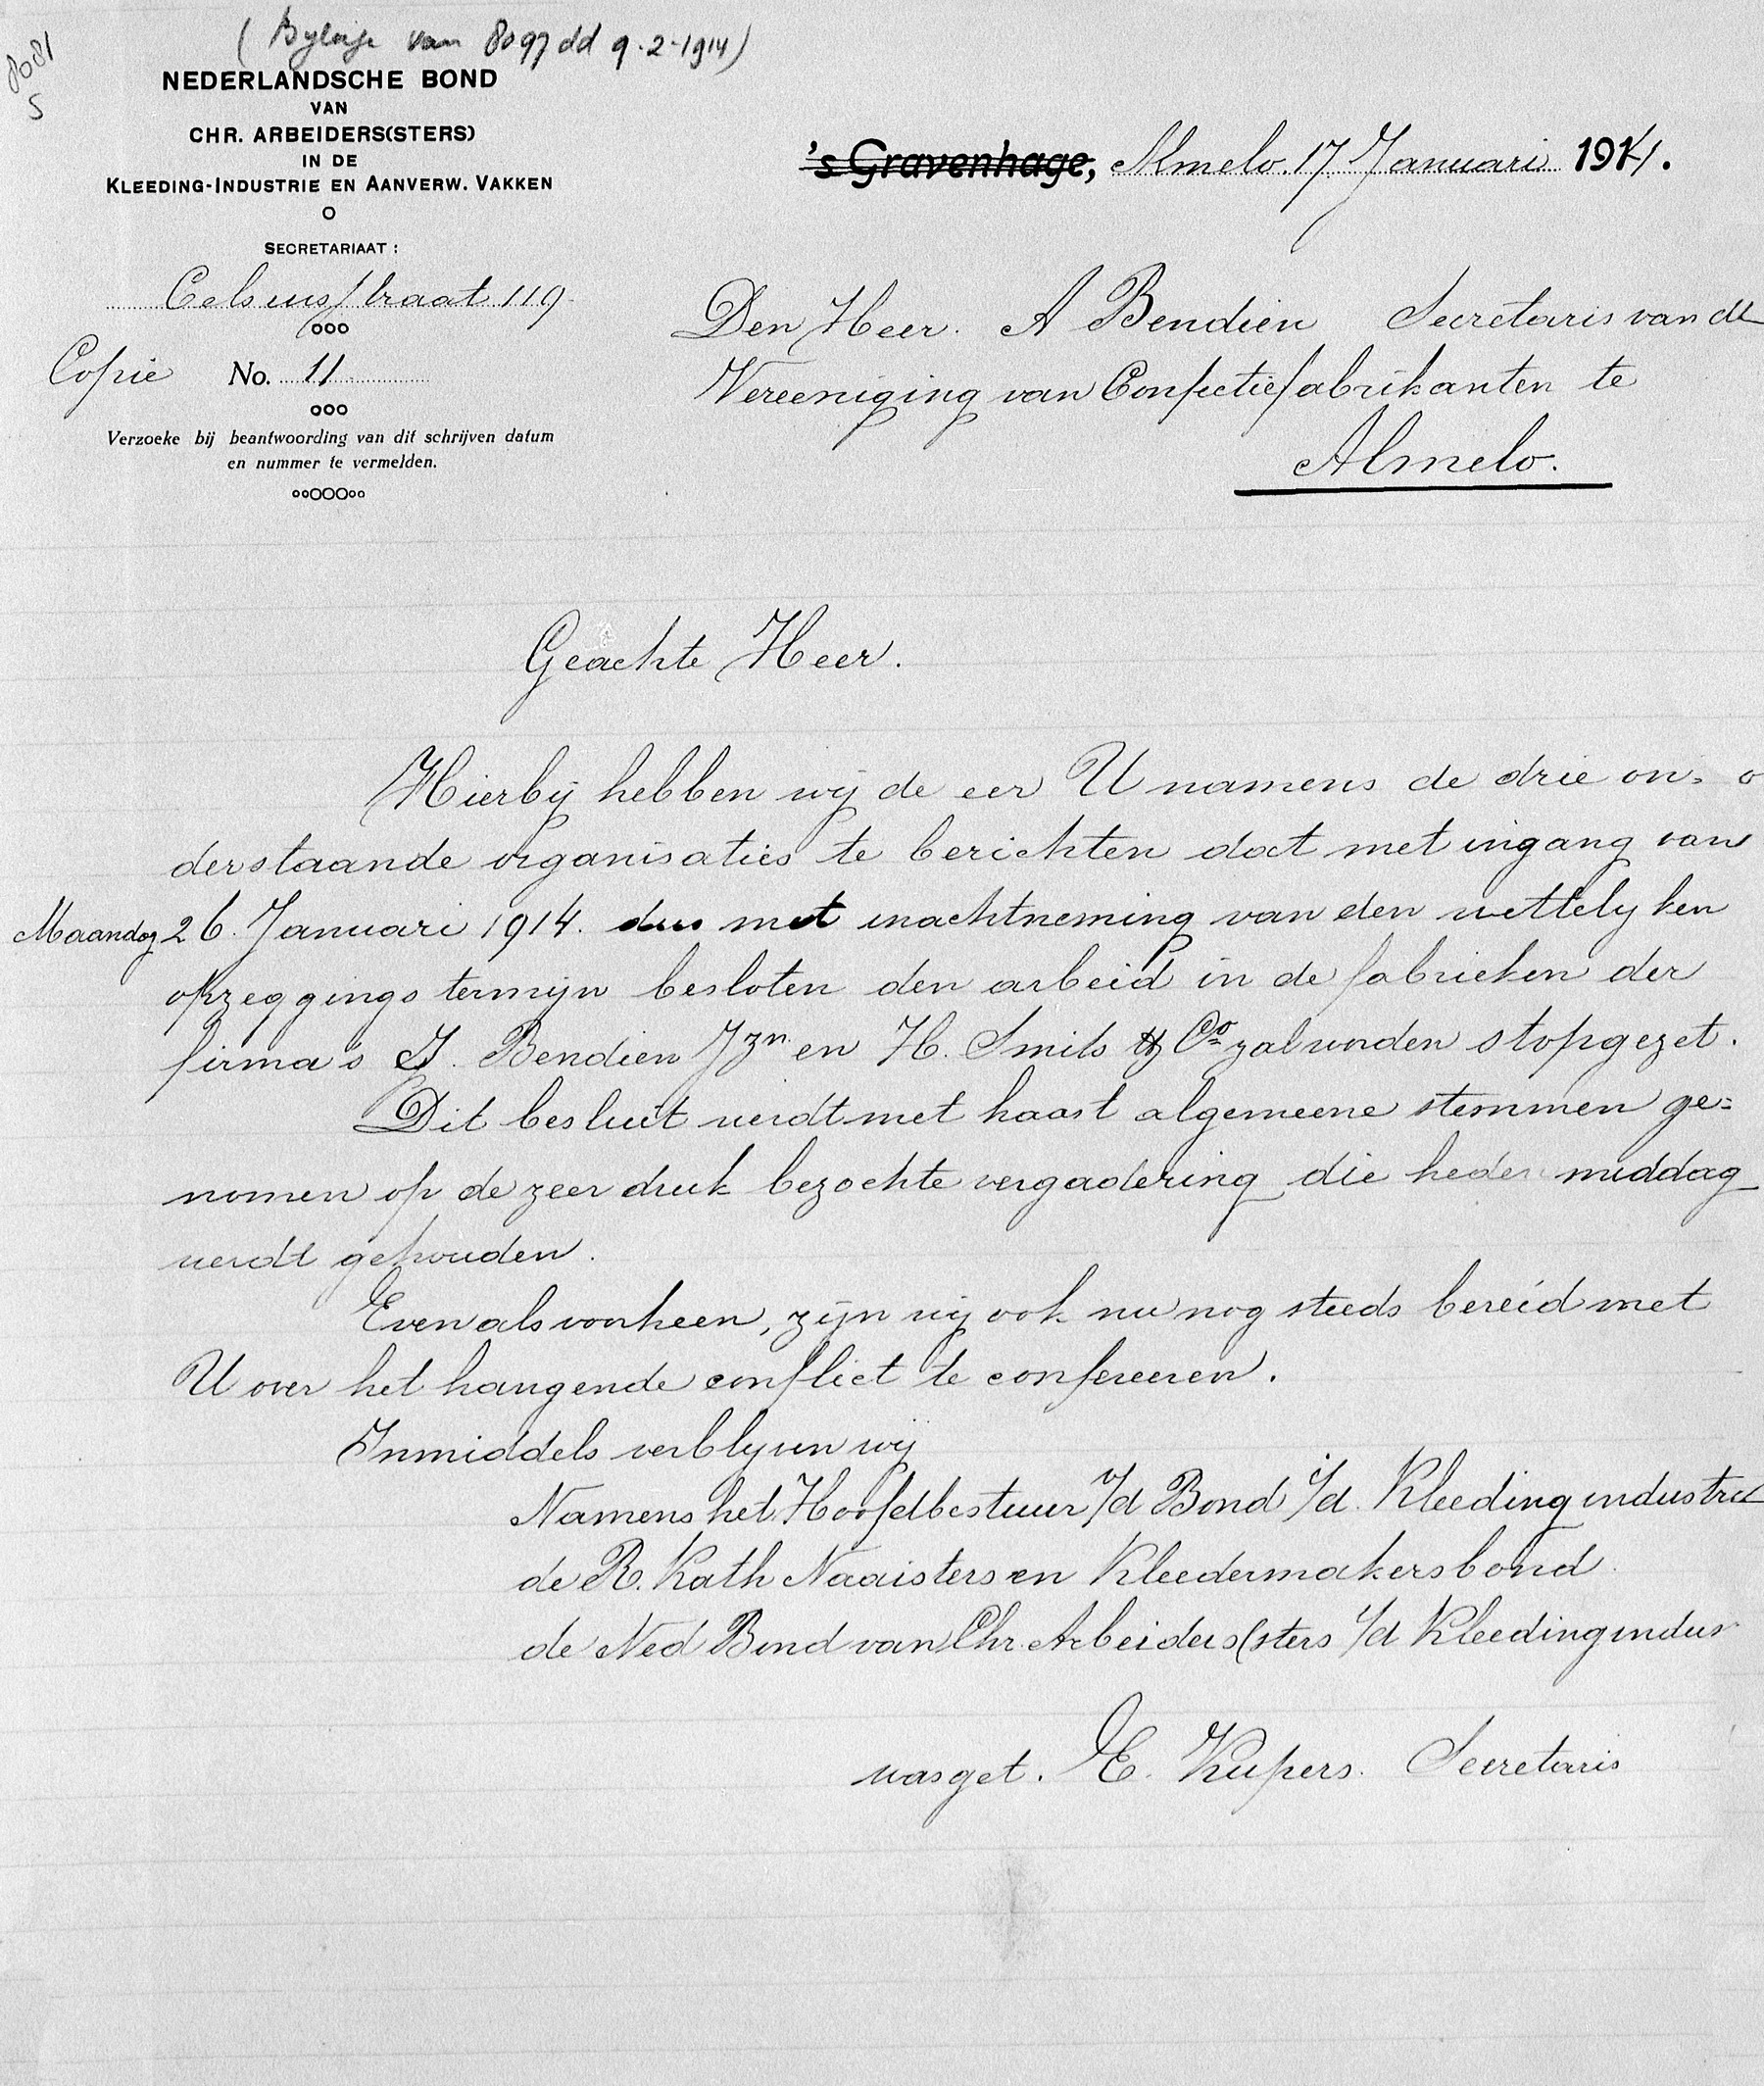 (Bylage van 8097 dd 9-2-1914)
8081
5
NEDERLANDSCHE BOND
VAN
CHR. ARBEIDERS(STERS)
IN DE
KLEEDING-INDUSTRIE EN AANVERW. VAKKEN
SECRETARIAAT:
Celsiusstraat 119
Copie No. 11
Verzoeke bij beantwoording van dit schrijven datum
en nummer te vermelden.
's Gravenhage, Almelo. 17 Januari 1914.
Den Heer. A Bendien Secretaris van de
Vereeniging van Confectiefabrikanten te
Almelo.
Geachte Heer.
Hierby hebben wij de eer U namens de drie on=
derstaande organisaties te berichten dat met ingang van
Maandag 26. Januari 1914. dus met inachtneming van den wettelyken
opzeggings termijn besloten den arbeid in de fabrieken der
firma's J. Bendien Jzn. en H. Smits & Co zal worden stopgezet.
Dit besluit werdt met haast algemeene stemmen ge=
nomen op de zeer druk bezochte vergadering die heden middag
werdt gehouden.
Even als voorheen, zijn wij ook nu nog steeds bereid met
U over het hangende conflict te confereeren.
Inmiddels verblyven wij
Namens het Hoofdbestuur v/d Bond i/d. Kleedingindustrie
de R. Kath Naaisters en Kleedermakersbond.
de Ned Bond van Chr. Arbeiders(sters i/d Kleedingindus
was get. E. Kupers. Secretaris